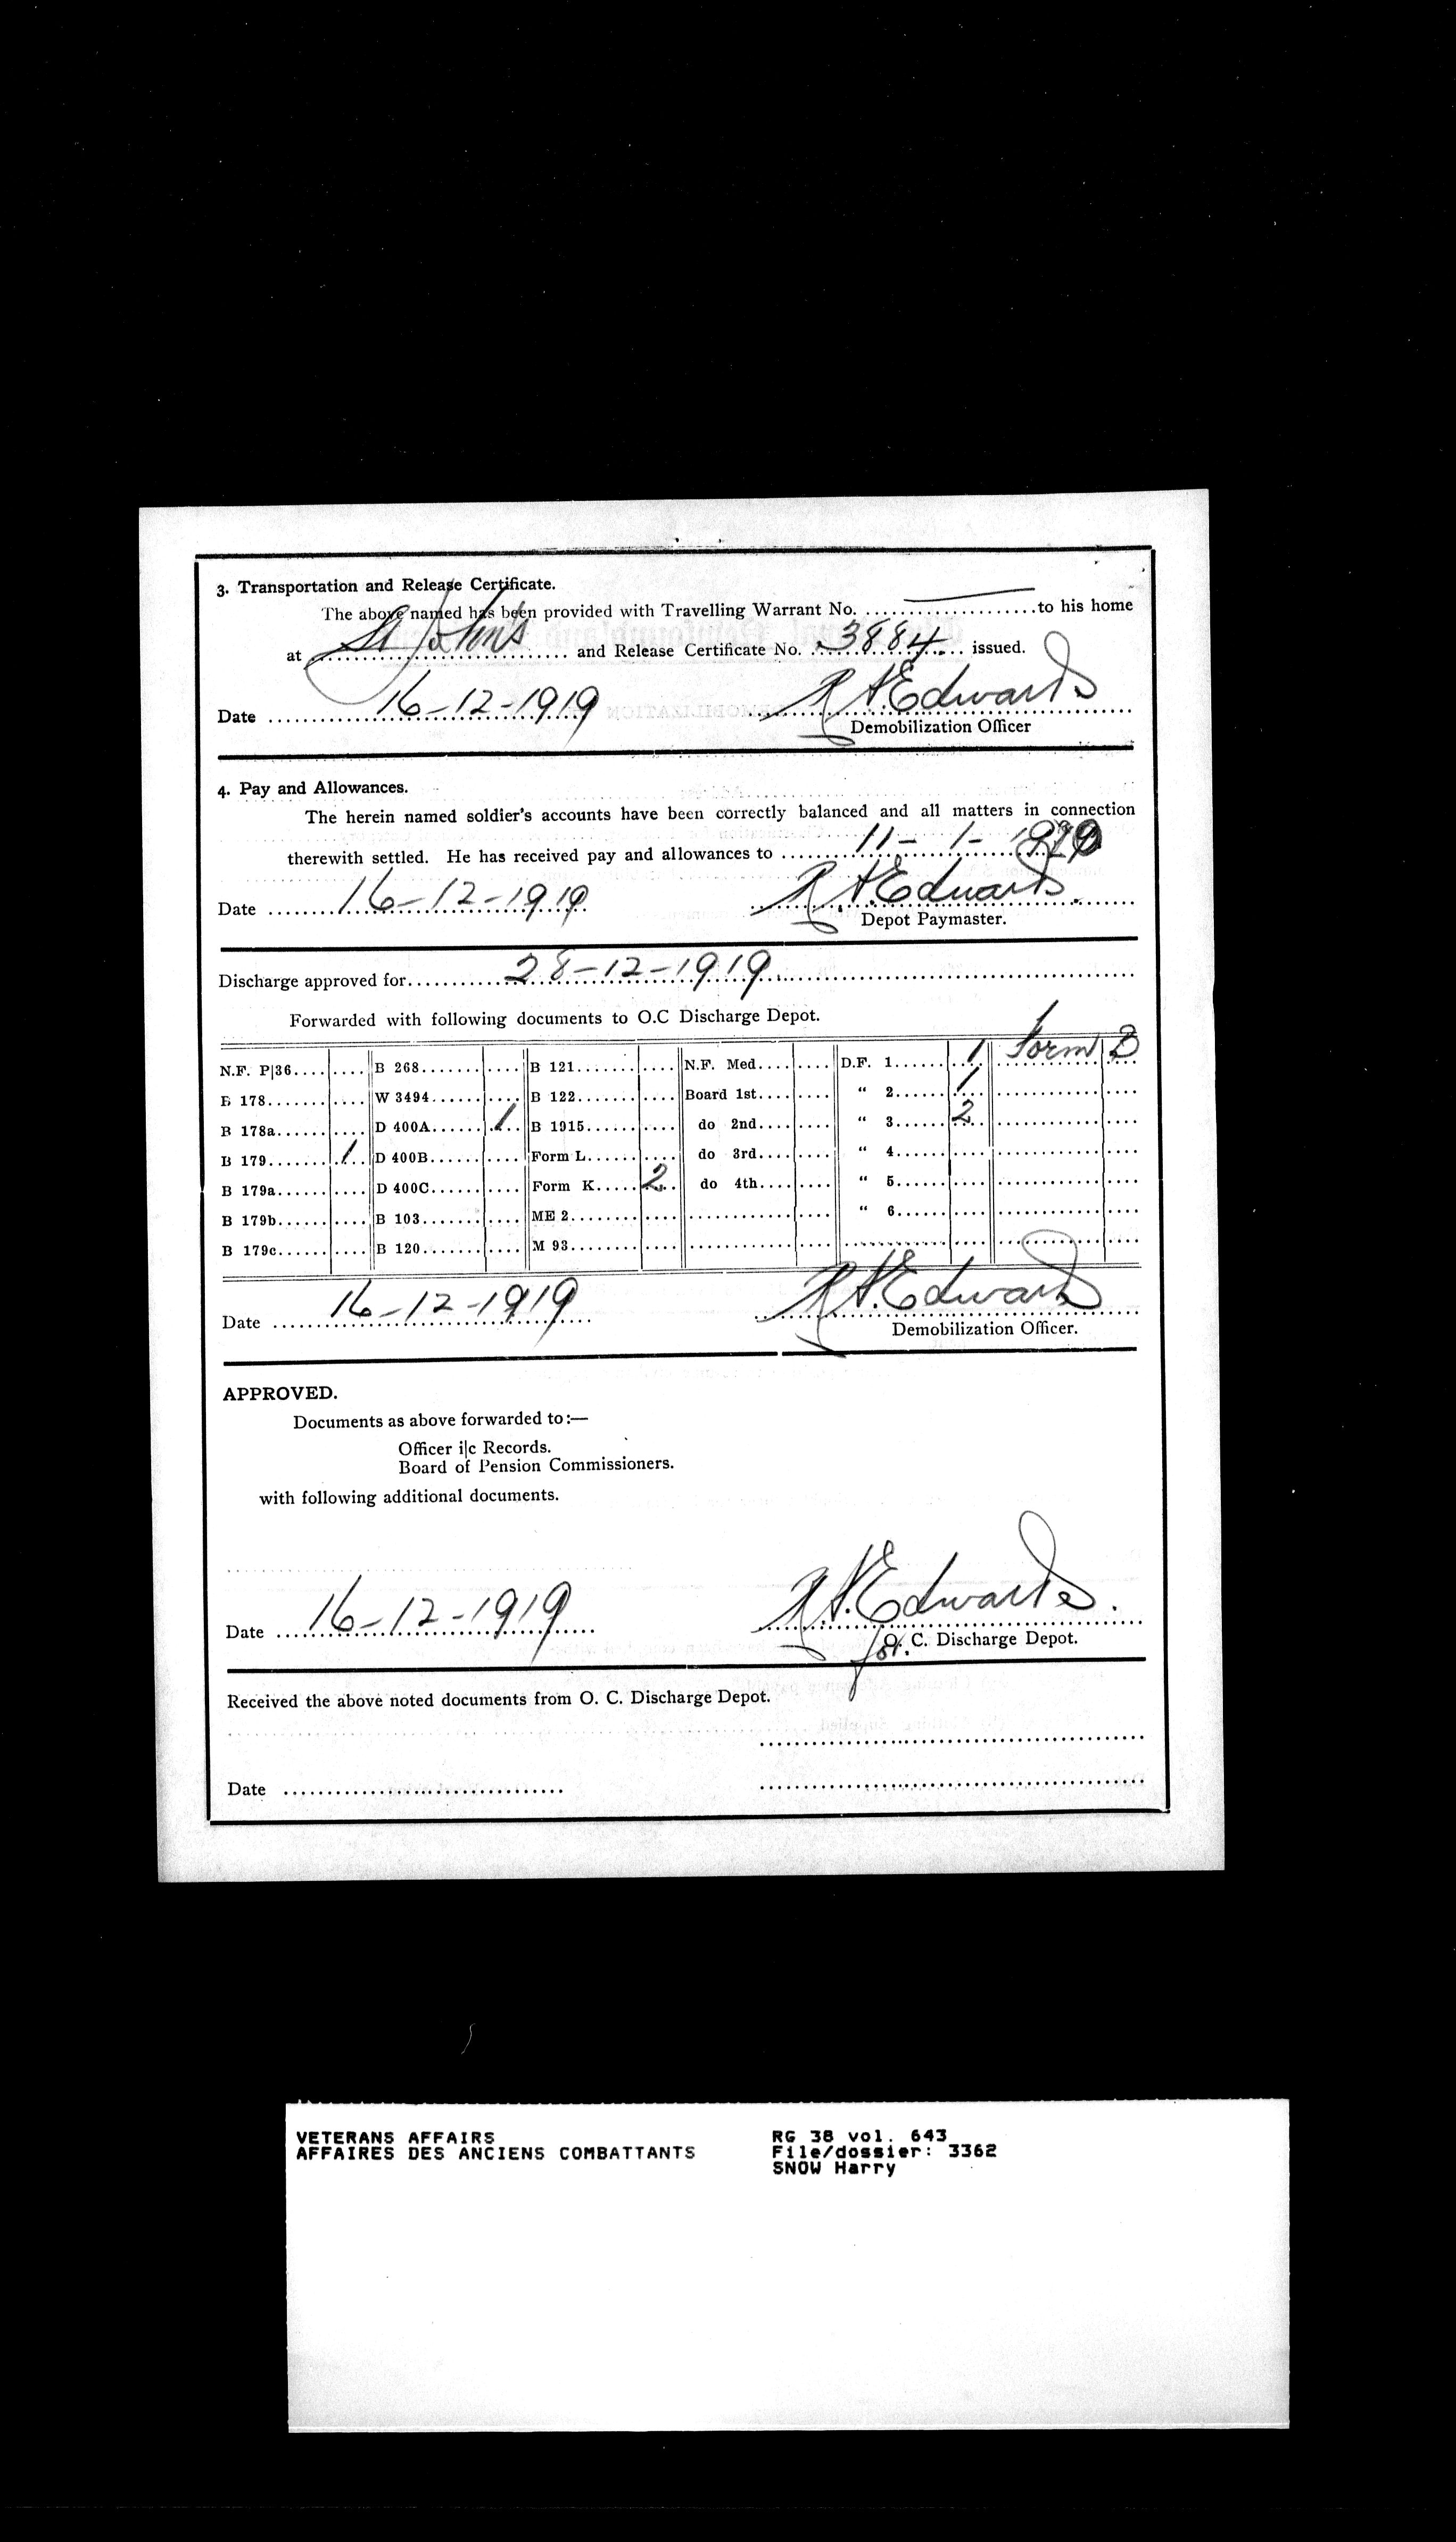 3. Transportation and Release Certificate.
The above named has been provided with Travelling Warrant No. .................... to his home
at St John's and Release Certificate No. 3884 issued.
Date 16-12-1919 R H Edwards
Demobilization Officer
4. Pay and Allowances.
The herein named soldier's accounts have been correctly balanced and all matters in connection
therewith settled. He has received pay and allowances to 11-1-1920
Date 16-12-1919 R H. Edwards.
Depot Paymaster.
Discharge approved for 28-12-1919
Forwarded with following documents to O.C Discharge Depot.
N.F. P|36 B 268 B 121 N.F. Med. D.F. 1 1 Form B 1
B 178 W 3494 B 122 Board 1st " 2 1
B 178a D 400A 1 B 1915 do 2nd " 3 2
B 179 1 D 400B Form L do 3rd " 4
B 179a D 400C Form K 2 do 4th " 5
B 179b B 103 ME 2 " 6
B 179c B 120 M 93
Date 16-12-1919 R H. Edwards
Demobilization Officer.
APPROVED.
Documents as above forwarded to:—
Officer i|c Records.
Board of Pension Commissioners.
with following additional documents.
Date 16-12-1919 R H. Edwards.
for O. C. Discharge Depot.
Received the above noted documents from O. C. Discharge Depot.
Date
VETERANS AFFAIRS RG 38 vol. 643
AFFAIRES DES ANCIENS COMBATTANTS File/dossier: 3362
SNOW Harry